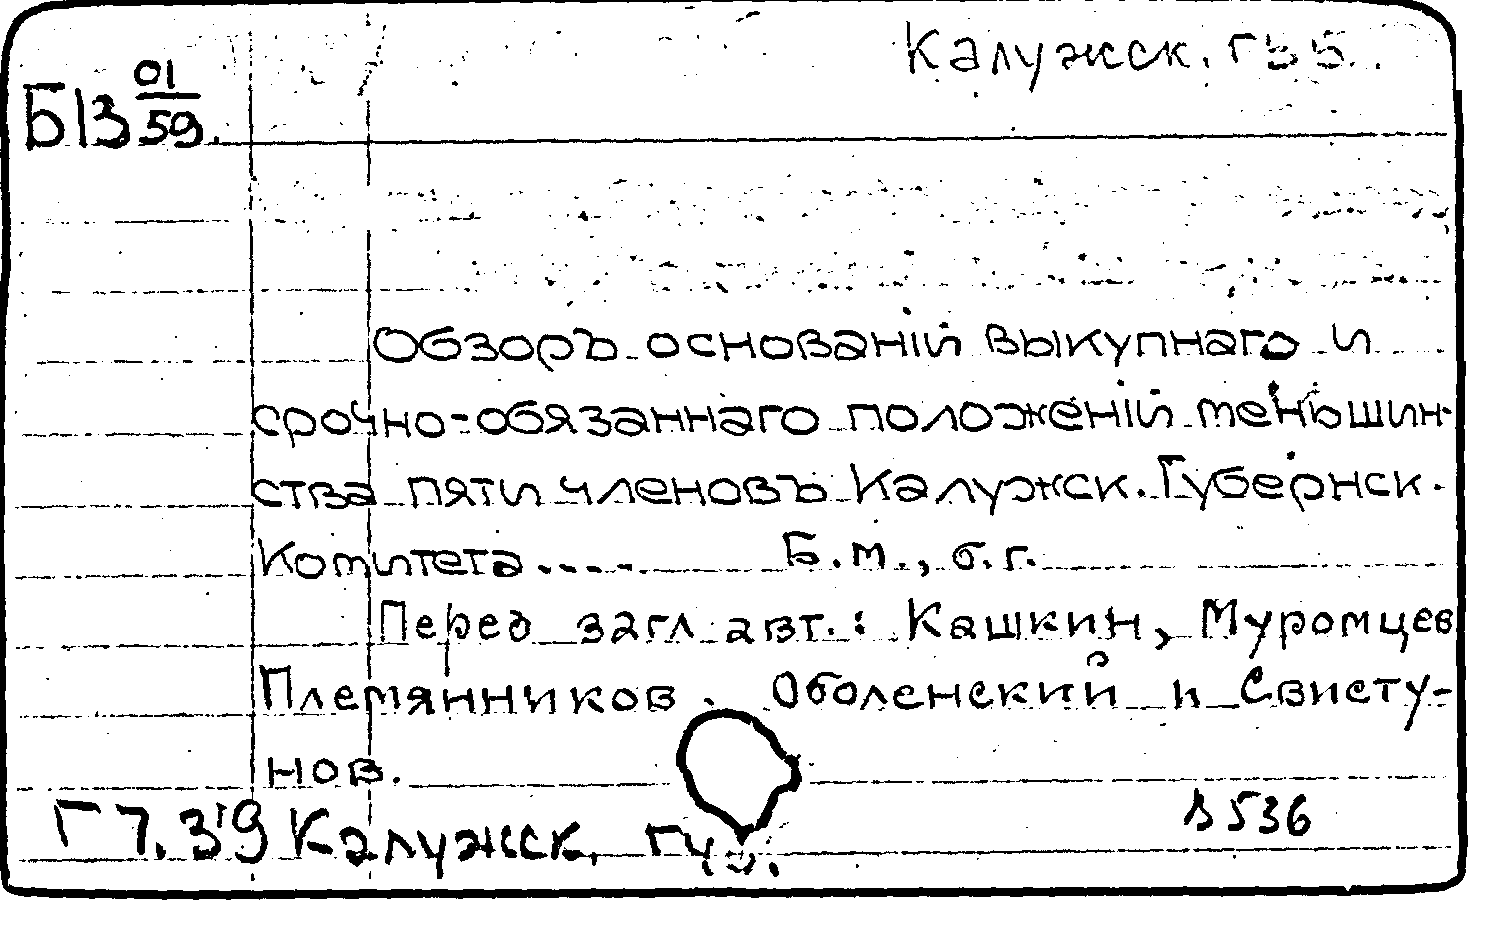 Калужск. губ.
Б13 01/59.
Обзоръ основаній выкупнаго и
срочно-обязаннаго положеній меньшин-
ства пяти членовъ Калужск. Губернск.
Комитета..... Б.м., б.г.
Перед загл. авт.: Кашкин, Муромцев
Племянников, Оболенский и Свисту-
нов.
536
Г7.3'9 Калужск. губ.